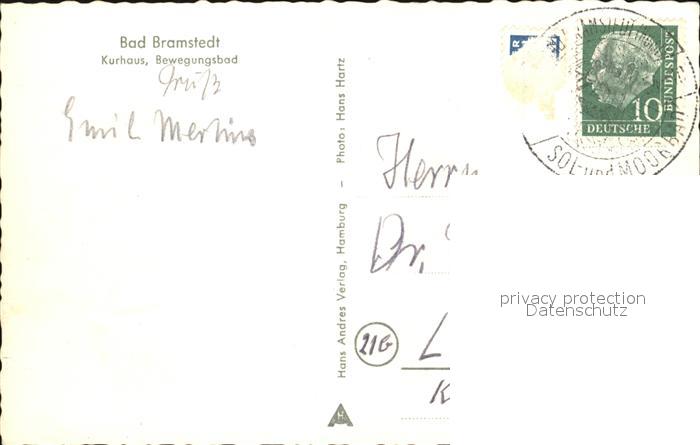 Bad Bramstedt
Kurhaus, Bewegungsbad
Gruß
Emil Mertins
Hans Andres Verlag, Hamburg – Photo: Hans Hartz
H
10
DEUTSCHE
BUNDESPOST
SOL- und MOOR
Herrn
Dr.
21b
L
K
privacy protection
Datenschutz